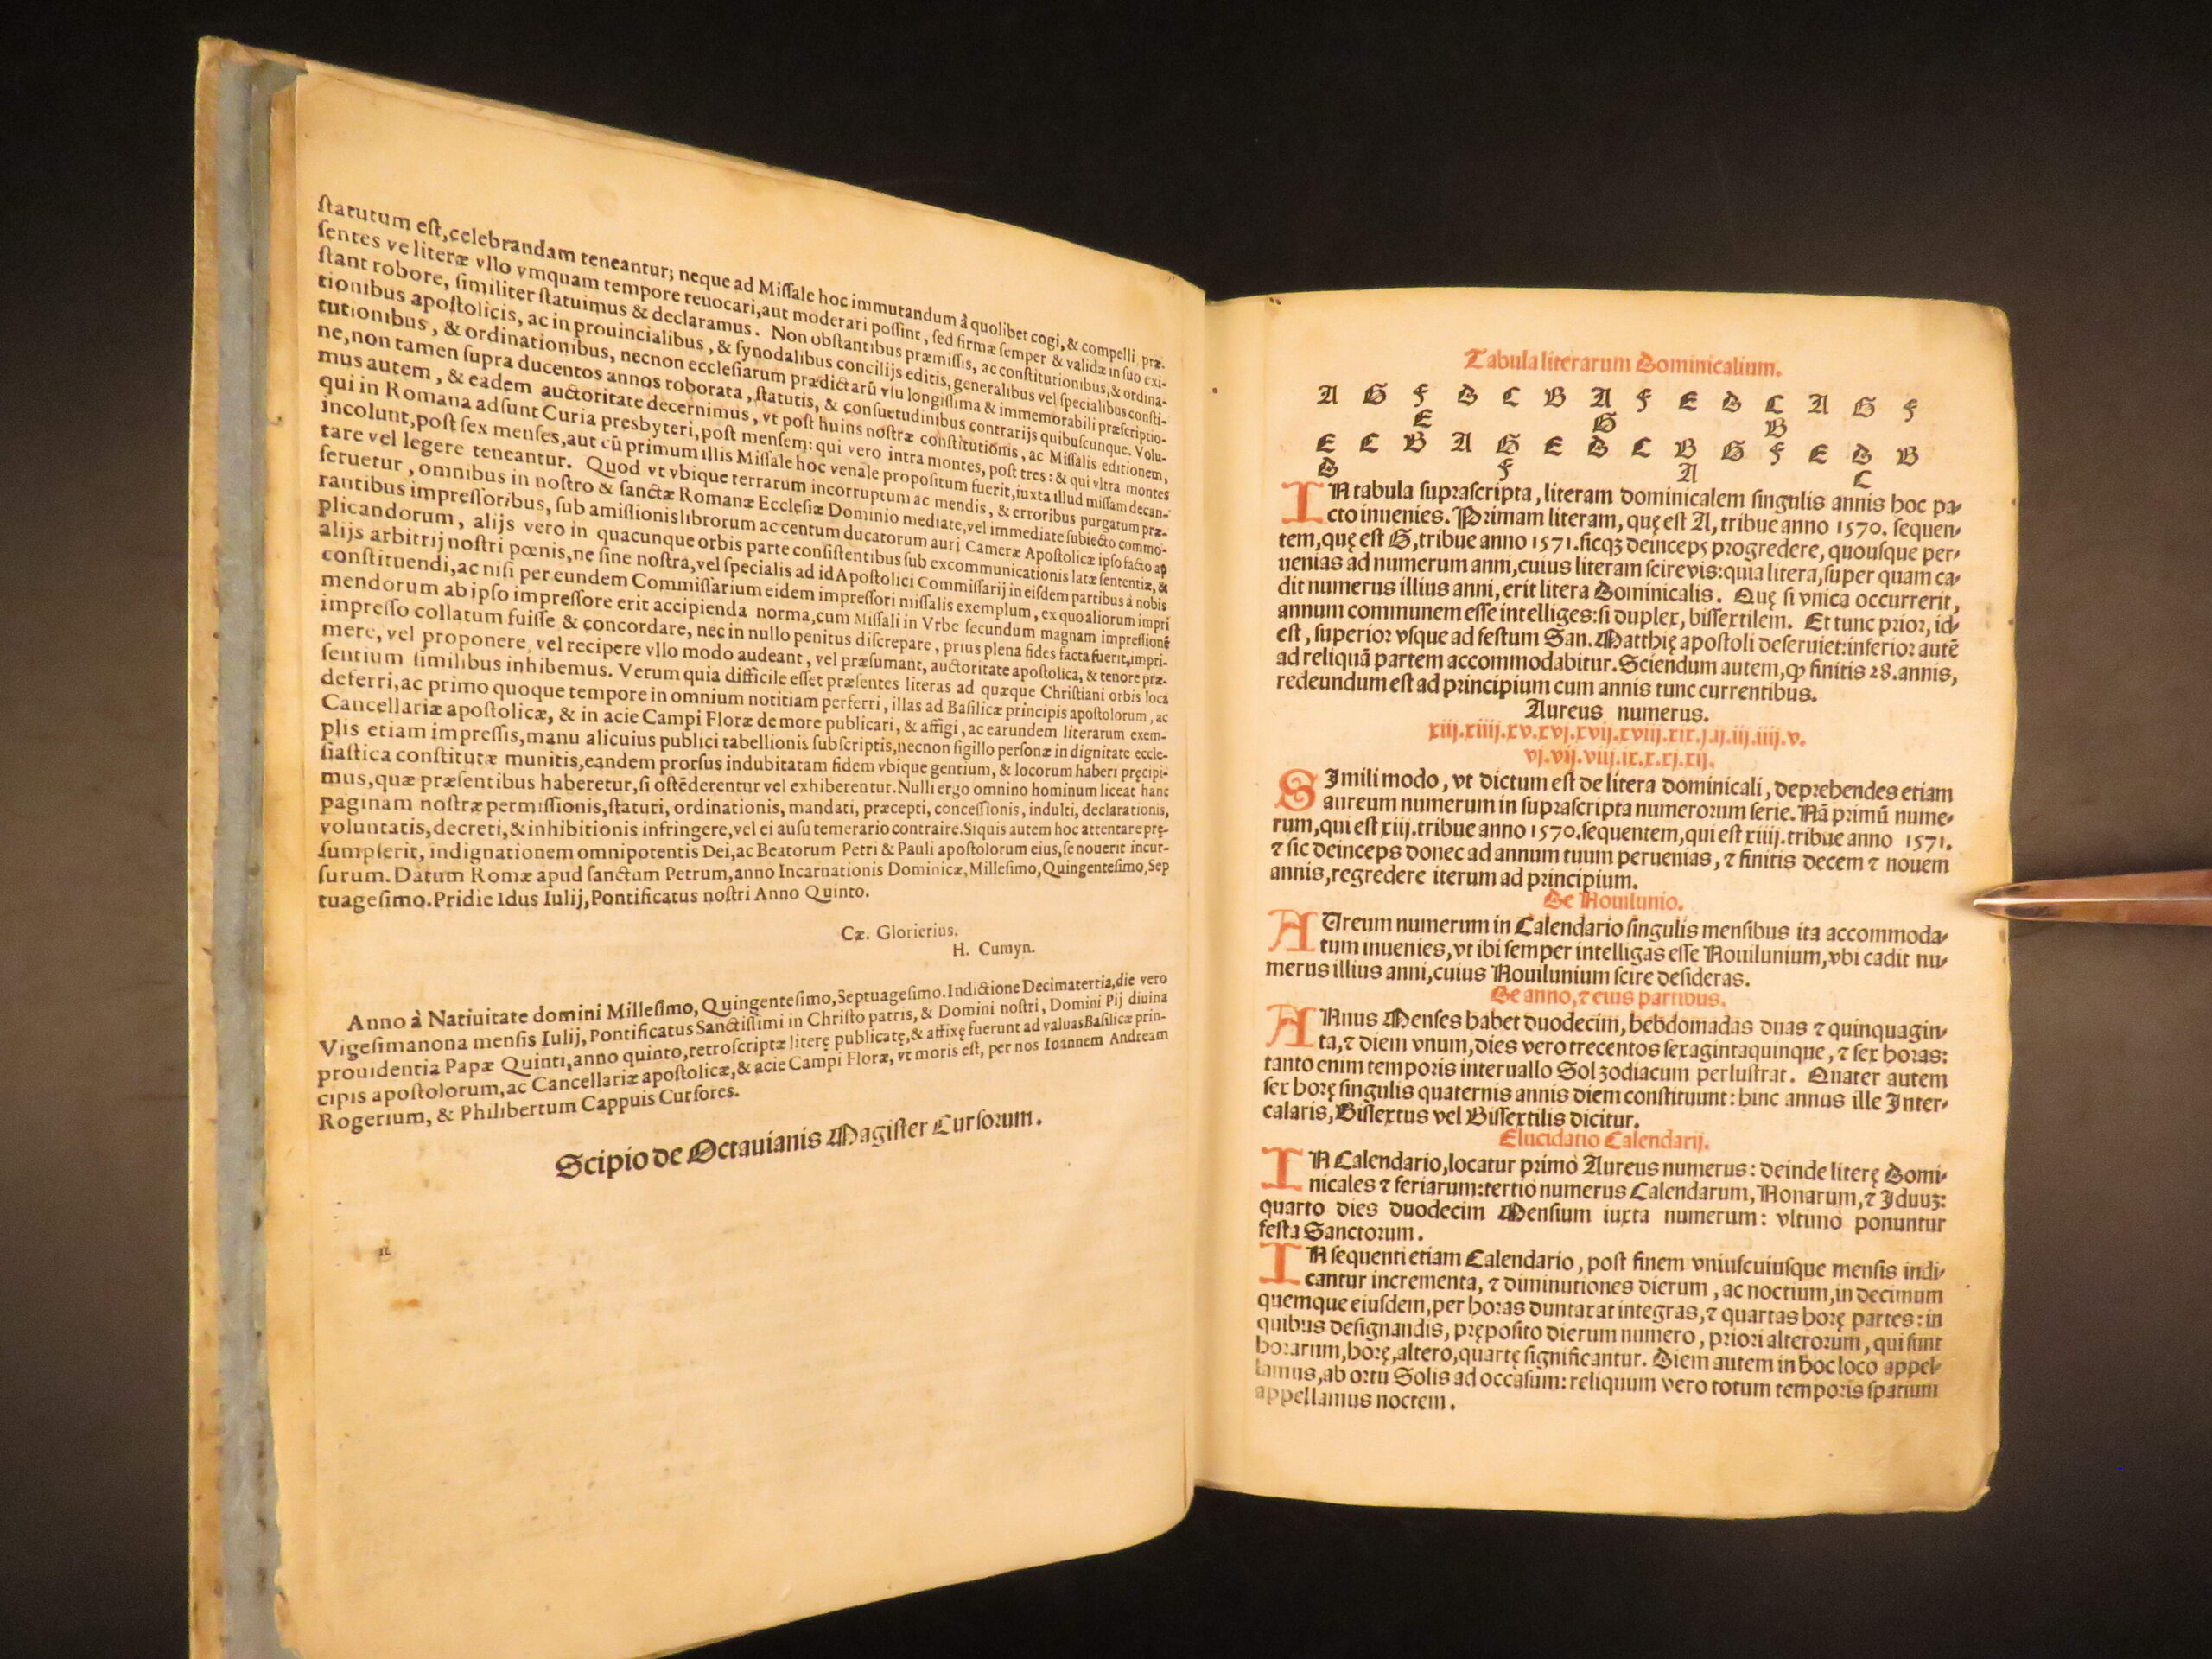 ſtatutum eſt,celebrandam teneantur; neque ad Miſſale hoc immutandum à quolibet cogi,& compelli præ-
ſentes ve literæ vllo vmquam tempore reuocari,aut moderari poſſint, ſed firmæ ſemper & validæ in ſuo exi-
ſtant robore, ſimiliter ſtatuimus & declaramus. Non obſtantibus præmiſſis, ac conſtitutionibus,& ordina-
tionibus apoſtolicis, ac in prouincialibus, & ſynodalibus concilijs editis, generalibus vel ſpecialibus conſti-
tutionibus, & ordinationibus, necnon eccleſiarum prædictarū vſu longiſſima & immemorabili præſcriptio-
ne,non tamen ſupra ducentos annos roborata, ſtatutis, & conſuetudinibus contrarijs quibuſcunque. Volu-
mus autem, & eadem auctoritate decernimus, vt poſt huius noſtræ conſtitutionis, ac Miſſalis editionem,
qui in Romana adſunt Curia presbyteri, poſt menſem: qui vero intra montes, poſt tres: & qui vltra montes
incolunt,poſt ſex menſes,aut cū primum illis Miſſale hoc venale propoſitum fuerit,iuxta illud miſſam decan-
tare vel legere teneantur. Quod vt vbique terrarum incorruptum ac mendis, & erroribus purgatum præ-
ſeruetur, omnibus in noſtro & ſanctæ Romanæ Eccleſiæ Dominio mediate,vel immediate ſubiecto commo-
rantibus impreſſoribus, ſub amiſſionis librorum ac centum ducatorum auri Cameræ Apoſtolicæ ipſo facto ap
plicandorum, alijs vero in quacunque orbis parte conſiſtentibus ſub excommunicationis latæ ſententiæ, &
alijs arbitrij noſtri pœnis,ne ſine noſtra,vel ſpecialis ad id Apoſtolici Commiſſarij in eiſdem partibus à nobis
conſtituendi,ac niſi per eundem Commiſſarium eidem impreſſori miſſalis exemplum, ex quo aliorum impri
mendorum ab ipſo impreſſore erit accipienda norma,cum Miſſali in Vrbe ſecundum magnam impreſſionē
impreſſo collatum fuiſſe & concordare, nec in nullo penitus diſcrepare, prius plena fides facta fuerit,impri-
mere, vel proponere, vel recipere vllo modo audeant, vel præſumant, auctoritate apoſtolica, & tenore præ-
ſentium ſimilibus inhibemus. Verum quia difficile eſſet præſentes literas ad quæque Chriſtiani orbis loca
deferri,ac primo quoque tempore in omnium notitiam perferri, illas ad Baſilicæ principis apoſtolorum, ac
Cancellariæ apoſtolicæ, & in acie Campi Floræ de more publicari, & affigi, ac earundem literarum exem-
plis etiam impreſſis,manu alicuius publici tabellionis ſubſcriptis,necnon ſigillo perſonæ in dignitate eccle-
ſiaſtica conſtitutæ munitis,eandem prorſus indubitatam fidem vbique gentium, & locorum haberi pręcipi-
mus,quæ præſentibus haberetur,ſi oſtēderentur vel exhiberentur.Nulli ergo omnino hominum liceat hanc
paginam noſtræ permiſſionis,ſtatuti, ordinationis, mandati, præcepti, conceſſionis, indulti, declarationis,
voluntatis,decreti,&inhibitionis infringere,vel ei auſu temerario contraire.Siquis autem hoc attentare prę-
ſumpſerit, indignationem omnipotentis Dei,ac Beatorum Petri & Pauli apoſtolorum eius,ſe nouerit incur-
ſurum.Datum Romæ apud ſanctum Petrum,anno Incarnationis Dominicæ,Milleſimo,Quingenteſimo,Sep
tuageſimo.Pridie Idus Iulij,Pontificatus noſtri Anno Quinto.
Cæ. Glorierius.
H. Cumyn.
Anno à Natiuitate domini Milleſimo,Quingenteſimo,Septuageſimo.Indictione Decimatertia,die vero
Vigeſimanona menſis Iulij, Pontificatus Sanctiſſimi in Chriſto patris,& Domini noſtri, Domini Pij diuina
prouidentia Papæ Quinti,anno quinto,retroſcriptæ literę publicatę,& affixę fuerunt ad valuas Baſilicæ prin-
cipis apoſtolorum,ac Cancellariæ apoſtolicæ,& acie Campi Floræ, vt moris eſt, per nos Ioannem Andream
Rogerium, & Philibertum Cappuis Curſores.
Scipio de Octauianis Magiſter Curſorum.
Tabula literarum Dominicalium.
A G F D C B A F E D C A G F
E G B
E C B A G E D C B G F E D B
D F A C
IN tabula supraſcripta, literam dominicalem ſingulis annis hoc pa-
cto inuenies. Primam literam, quę eſt A, tribue anno 1570. ſequen-
tem,quę eſt G,tribue anno 1571.ſicqꝫ deinceps progredere, quouſque per-
uenias ad numerum anni,cuius literam ſcire vis:quia litera,ſuper quam ca-
dit numerus illius anni, erit litera Dominicalis. Quę ſi vnica occurrerit,
annum communem eſſe intelliges:ſi duplex, biſſextilem. Et tunc prior, id-
eſt, ſuperior vſque ad feſtum San. Matthię apoſtoli deſeruiet:inferior autē
ad reliquā partem accommodabitur.Sciendum autem,ꝙ finitis 28.annis,
redeundum eſt ad principium cum annis tunc currentibus.
Aureus numerus.
xiij.xiiij.xv.xvj.xvij.xviij.xix.j.ij.iij.iiij.v.
vj.vij.viij.ix.x.xj.xij.
SImili modo, vt dictum eſt de litera dominicali, deprehendes etiam
aureum numerum in supraſcripta numerorum ſerie. Nā primū nume-
rum,qui eſt xiij.tribue anno 1570.ſequentem,qui eſt xiiij.tribue anno 1571.
⁊ ſic deinceps donec ad annum tuum peruenias, ⁊ finitis decem ⁊ nouem
annis,regredere iterum ad principium.
De Nouilunio.
AUreum numerum in Calendario ſingulis menſibus ita accommoda-
tum inuenies,vt ibi ſemper intelligas eſſe Nouilunium,vbi cadit nu-
merus illius anni,cuius Nouilunium ſcire deſideras.
De anno,⁊ eius partibus.
ANnus Menſes habet duodecim, hebdomadas duas ⁊ quinquagin-
ta,⁊ diem vnum,dies vero trecentos ſexagintaquinque, ⁊ ſex horas:
tanto enim temporis interuallo Sol zodiacum perluſtrat. Quater autem
ſex horę ſingulis quaternis annis diem conſtituunt: hinc annus ille Inter-
calaris,Biſſextus vel Biſſextilis dicitur.
Elucidatio Calendarij.
IN Calendario,locatur primo Aureus numerus: deinde literę Domi-
nicales ⁊ feriarum:tertio numerus Calendarum, Nonarum,⁊ Iduuꝫ:
quarto dies duodecim Menſium iuxta numerum: vltimo ponuntur
feſta Sanctorum.
IN ſequenti etiam Calendario, poſt finem vniuſcuiuſque menſis indi-
cantur incrementa, ⁊ diminutiones dierum, ac noctium,in decimum
quemque eiuſdem,per horas duntaxat integras,⁊ quartas horę partes:in
quibus deſignandis, prępoſito dierum numero, priori alterorum, qui ſunt
horarum,horę,altero,quartę ſignificantur. Diem autem in hoc loco appel-
lamus,ab ortu Solis ad occaſum: reliquum vero totum temporis ſpatium
appellamus noctem.